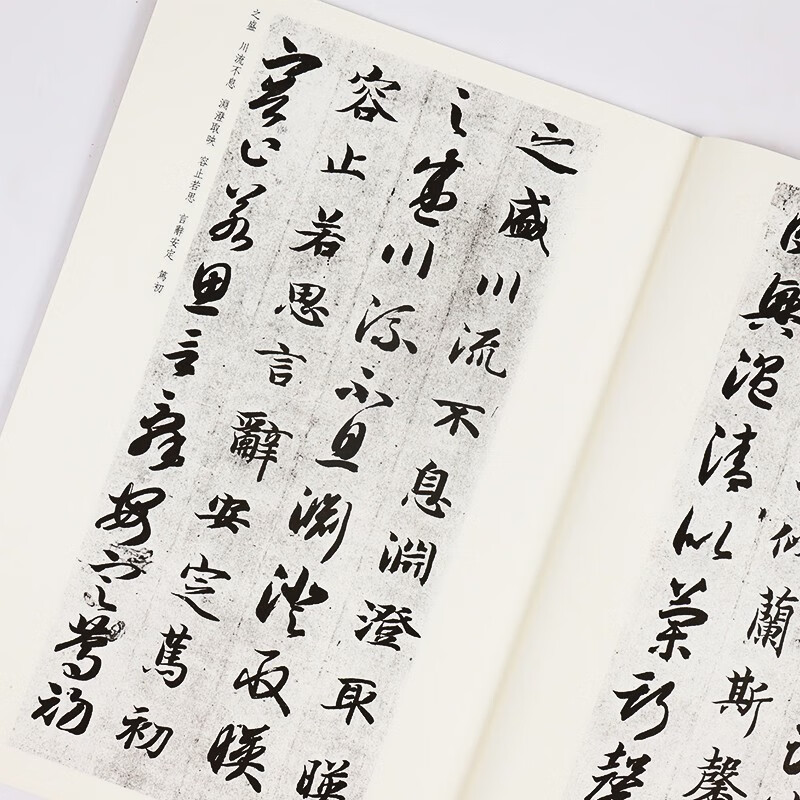 似蘭斯馨
興溫清似蘭斯馨
之盛川流不息淵澄取暎
之盛川流不息淵澄取暎
容止若思言辭安定篤初
容止若思言辭安定篤初
之盛 川流不息 淵澄取映 容止若思 言辭安定 篤初